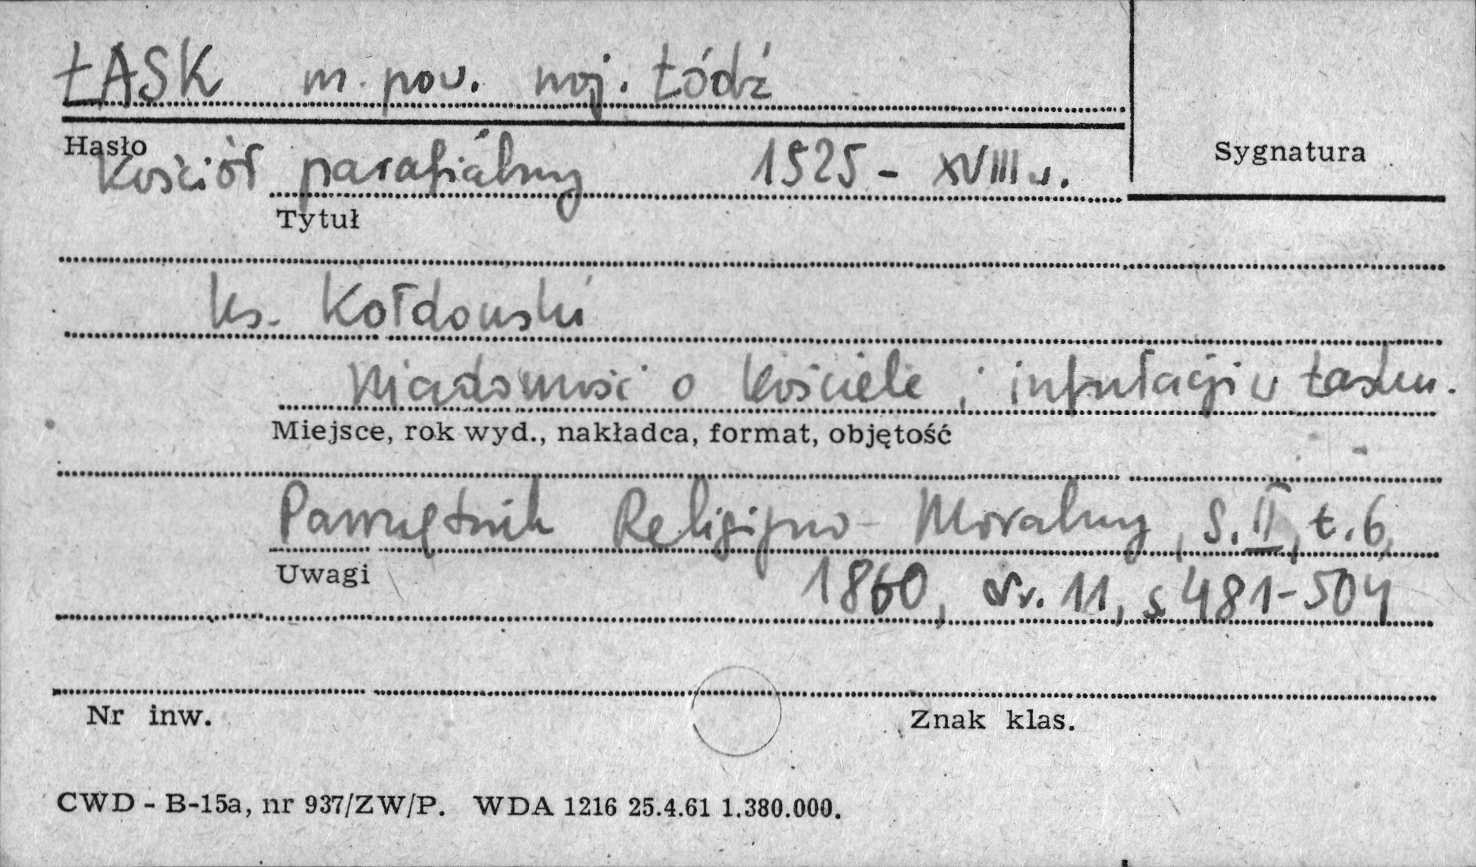 ŁASK m. pow. woj. Łódź
Hasło
Sygnatura
Kościół parafialny 1525 - XVIII w.
Tytuł
ks. Kołdowski
Wiadomość o kościele i infułacji w Łasku.
Miejsce, rok wyd., nakładca, format, objętość
Pamiętnik Religijno-Moralny, S. II, t. 6,
Uwagi
1860, nr. 11, s 481-504
Nr inw.
Znak klas.
CWD - B-15a, nr 937/ZW/P. WDA 1216 25.4.61 1.380.000.